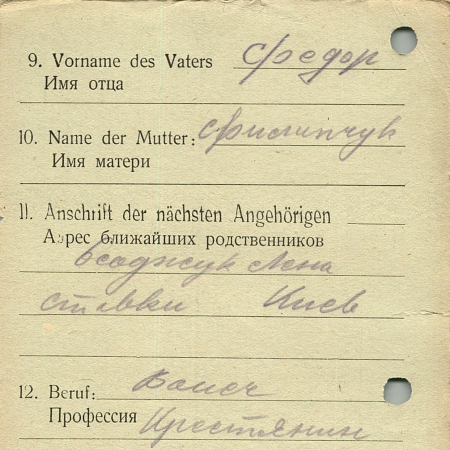 9. Vorname des Vaters Федор
Имя отца
10. Name der Mutter: Филипчук
Имя матери
11. Anschrift der nächsten Angehörigen
Адрес ближайших родственников
Лена
ставки Киев
12. Beruf: Bauer
Профессия Крестянин